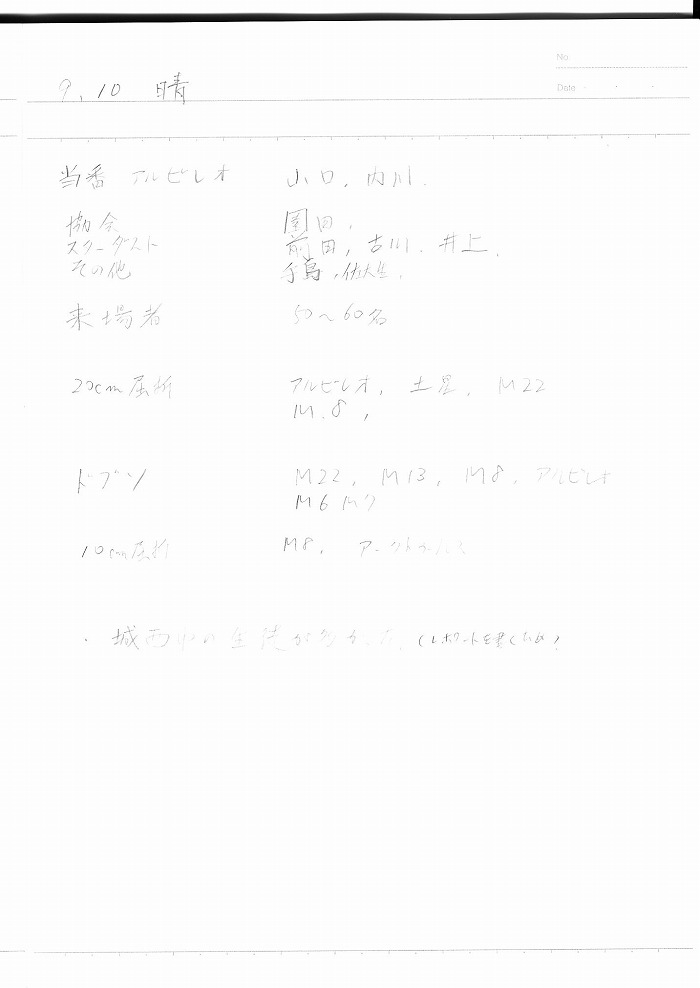 No
Date
9.10 晴
当番 アルビレオ 山口, 内川.
協会 園田,
スターダスト 前田, 古川. 井上.
その他 手島,
来場者 50～60名
20cm屈折 アルビレオ, 土星, M22
M.8,
ドブソン M22, M13, M8, アルビレオ
M6 M7
10cm屈折 M8, アークトゥルス
・城西中の生徒が多かった. (レポートを書くため)